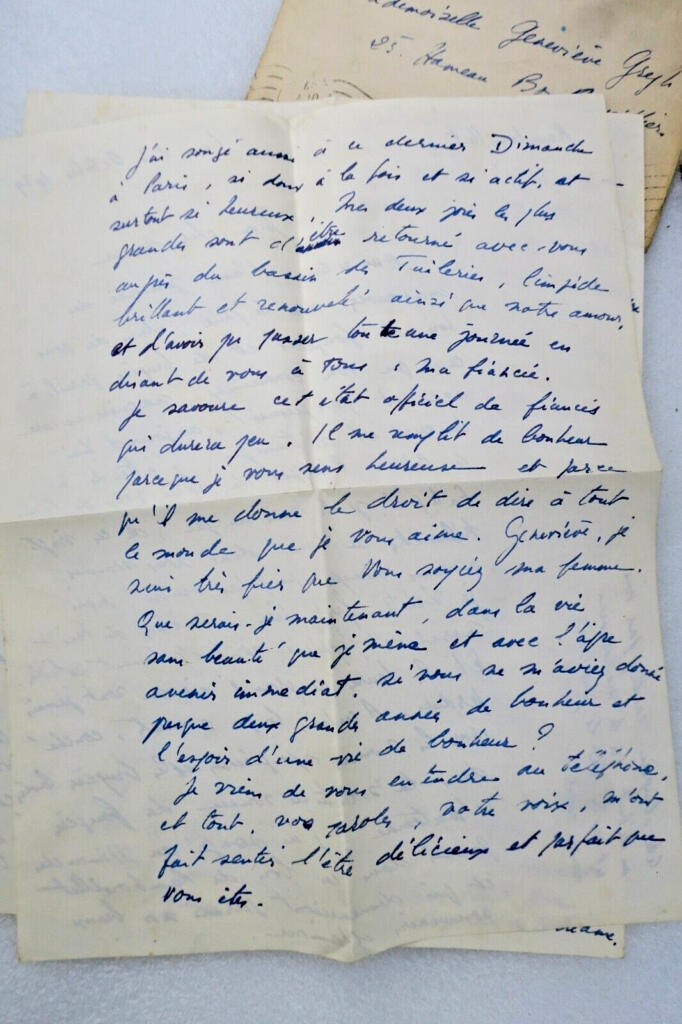 demoiselle Geneviève Gregh
25. Hameau
J'ai songé aussi à ce dernier Dimanche
à Paris, si doux à la fois et si actif, et
surtout si heureux. Mes deux joies les plus
grandes sont d'être retourné avec vous
auprès du bassin des Tuileries, limpide
brillant et renouvelé ainsi que notre amour,
et d'avoir pu passer toute une journée en
disant de vous à tous : ma fiancée.
Je savoure cet état officiel de fiancés
qui durera peu. Il me remplit de bonheur
parce que je vous sens heureuse et parce
qu'il me donne le droit de dire à tout
le monde que je vous aime. Geneviève, je
suis très fier que vous soyiez ma femme.
Que serais-je maintenant, dans la vie
sans beauté que je mène et avec l'âpre
avenir immédiat. si vous ne m'aviez donné
presque deux grands années de bonheur et
l'espoir d'une vie de bonheur ?
Je viens de vous entendre au téléphone,
et tout, vos paroles, votre voix, m'ont
fait sentir l'être délicieux et parfait que
vous êtes.